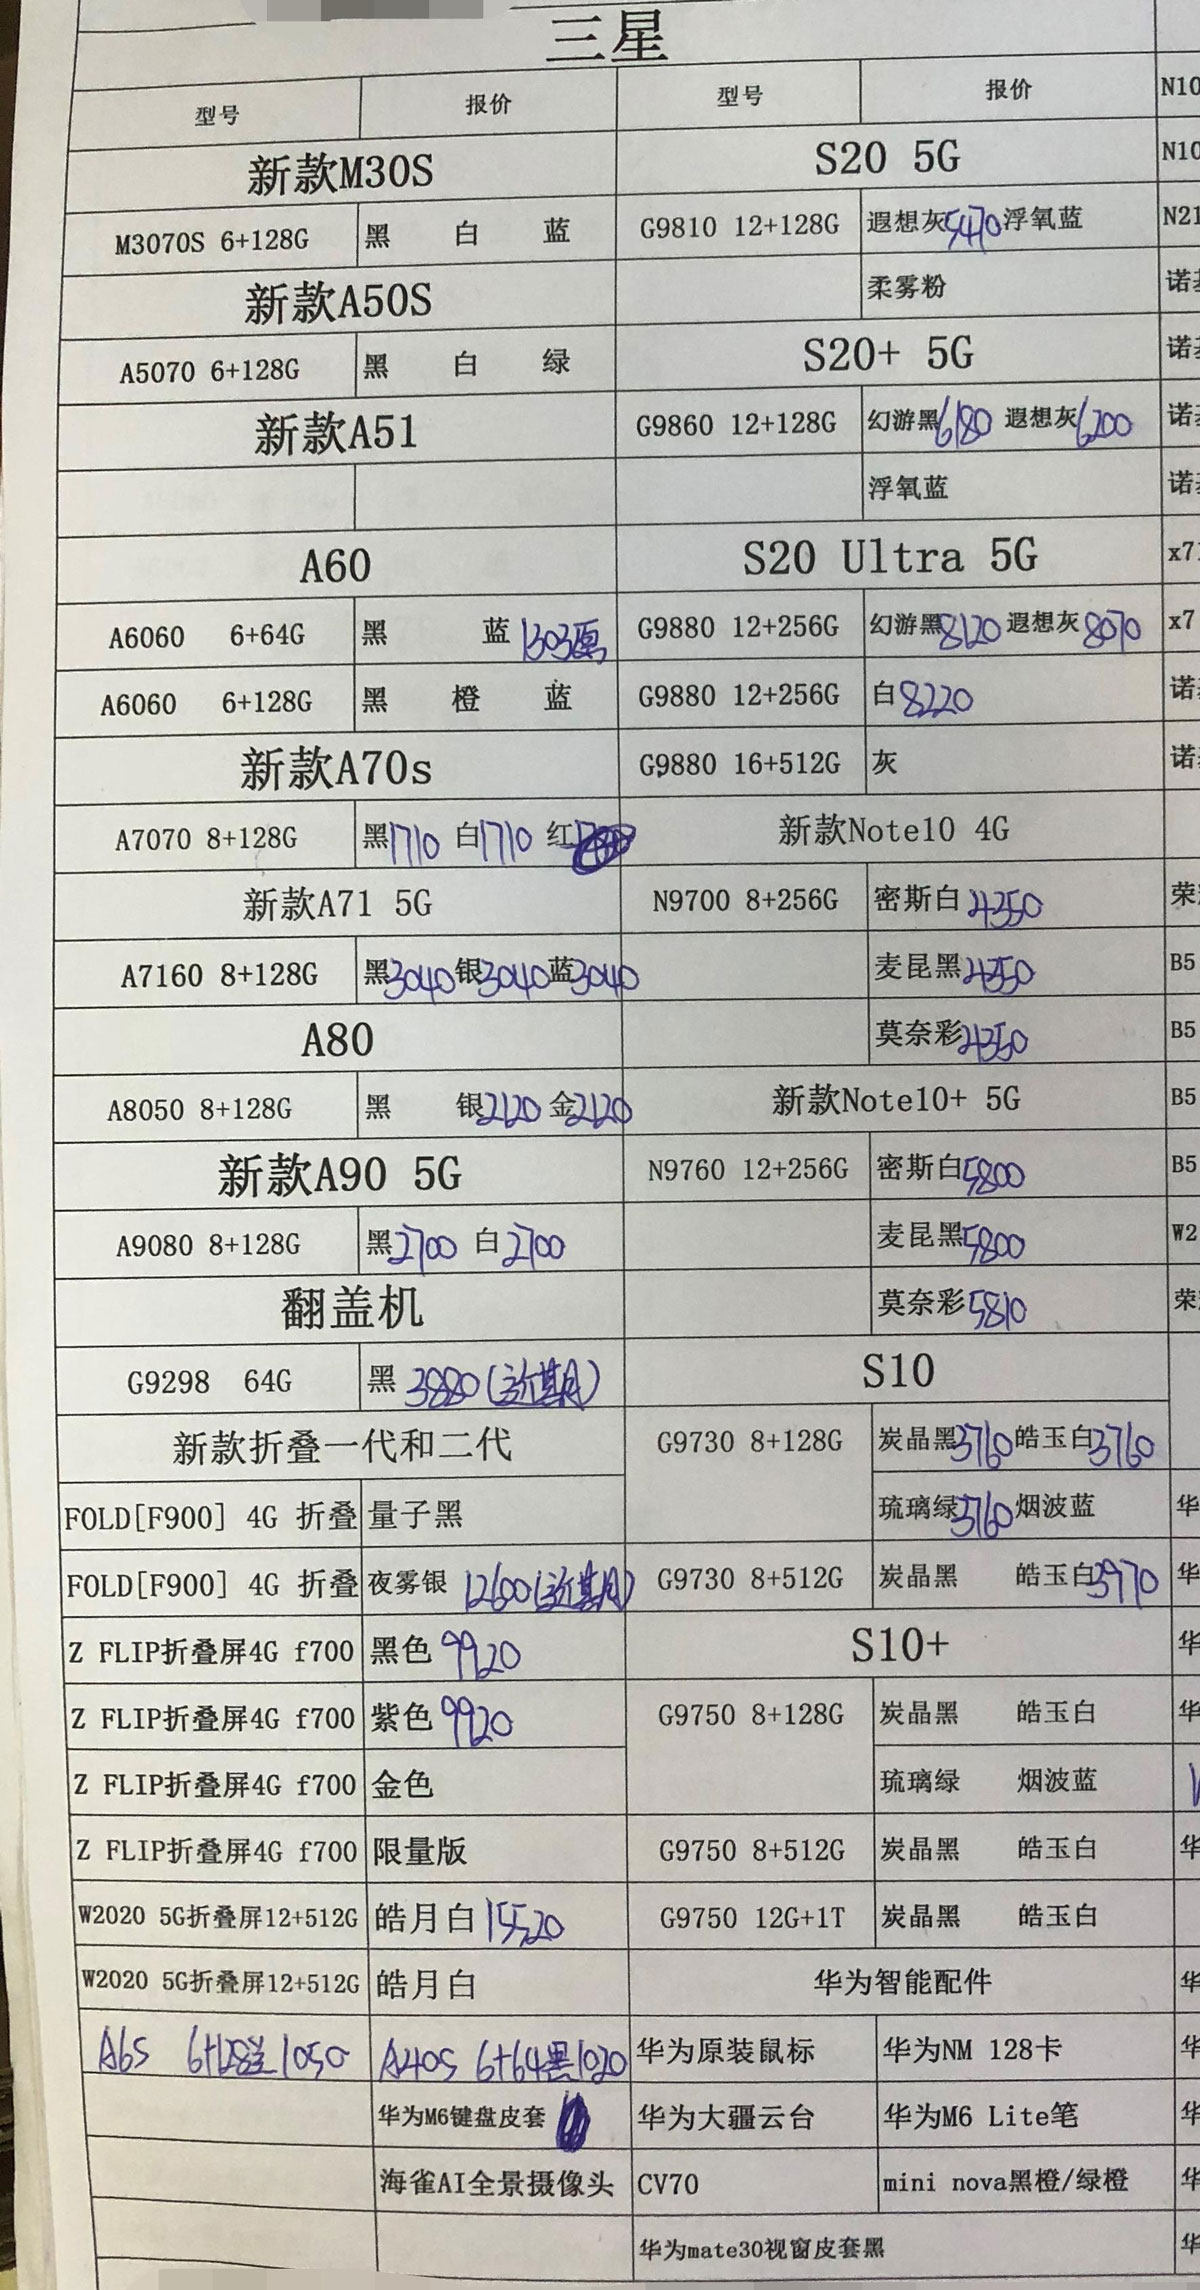 三星
型号 报价 型号 报价 N10
新款M30S S20 5G N10
M3070S 6+128G 黑 白 蓝 G9810 12+128G 遐想灰5470浮氧蓝 N21
新款A50S 柔雾粉
A5070 6+128G 黑 白 绿 S20+ 5G 诺
新款A51 G9860 12+128G 幻游黑6180 遐想灰6200 诺
浮氧蓝 诺
A60 S20 Ultra 5G x71
A6060 6+64G 黑 蓝1303原 G9880 12+256G 幻游黑8120 遐想灰8070 x7
A6060 6+128G 黑 橙 蓝 G9880 12+256G 白8220 诺
新款A70s G9880 16+512G 灰 诺
A7070 8+128G 黑1710 白1710 红 新款Note10 4G
新款A71 5G N9700 8+256G 密斯白4350 荣
A7160 8+128G 黑3040银3040蓝3040 麦昆黑4350 B5
A80 莫奈彩4350 B5
A8050 8+128G 黑 银2120 金2120 新款Note10+ 5G B5
新款A90 5G N9760 12+256G 密斯白5800 B5
A9080 8+128G 黑2700 白2700 麦昆黑5800 W2
翻盖机 莫奈彩5810 荣
G9298 64G 黑 3880(近期) S10
新款折叠一代和二代 G9730 8+128G 炭晶黑3760皓玉白3760
FOLD[F900] 4G 折叠 量子黑 琉璃绿3760烟波蓝 华
FOLD[F900] 4G 折叠 夜雾银 12600(近期) G9730 8+512G 炭晶黑 皓玉白3970 华
Z FLIP折叠屏4G f700 黑色9920 S10+ 华
Z FLIP折叠屏4G f700 紫色9920 G9750 8+128G 炭晶黑 皓玉白 华
Z FLIP折叠屏4G f700 金色 琉璃绿 烟波蓝
Z FLIP折叠屏4G f700 限量版 G9750 8+512G 炭晶黑 皓玉白 华
W2020 5G折叠屏12+512G 皓月白15520 G9750 12G+1T 炭晶黑 皓玉白
W2020 5G折叠屏12+512G 皓月白 华为智能配件 华
A6S 6+128兰1050 A40S 6+64黑1020 华为原装鼠标 华为NM 128卡 华
华为M6键盘皮套 华为大疆云台 华为M6 Lite笔 华
海雀AI全景摄像头 CV70 mini nova黑橙/绿橙 华
华为mate30视窗皮套黑 华